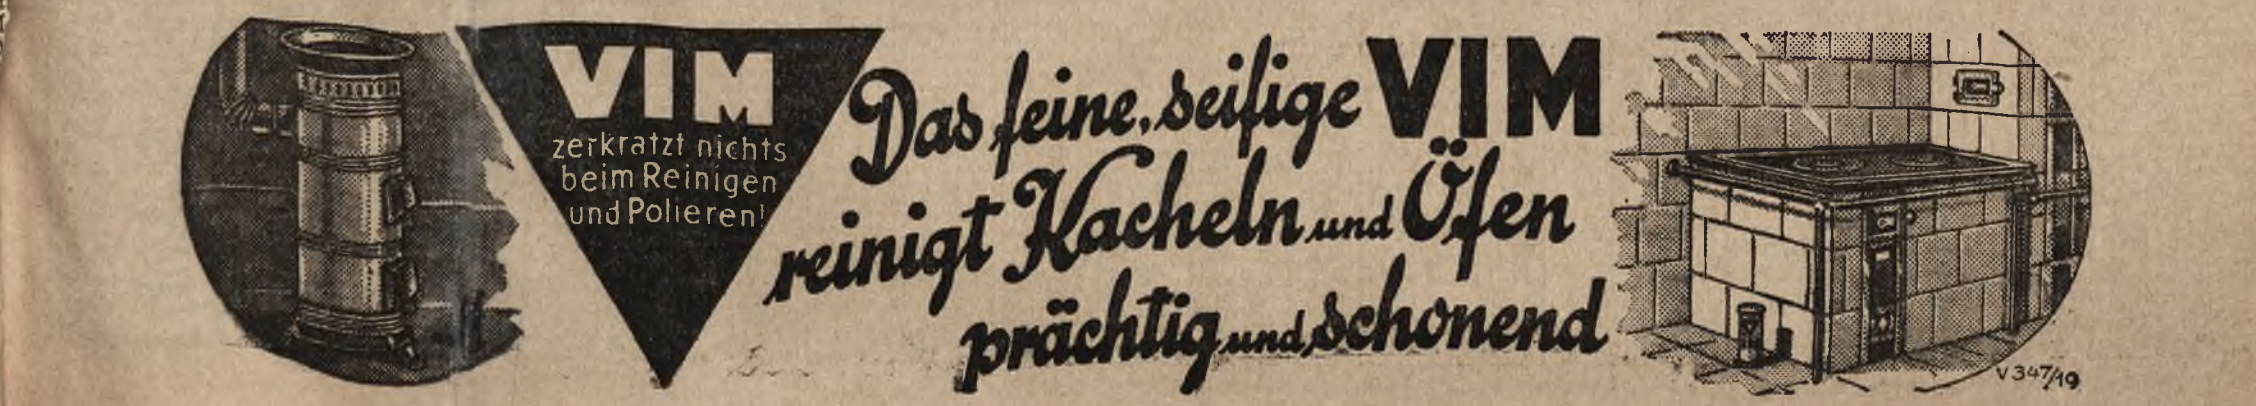 VIM
zerkratzt nichts
beim Reinigen
und Polieren!
Das feine, seifige VIM
reinigt Kacheln und Öfen
prächtig und schonend
V 347/19